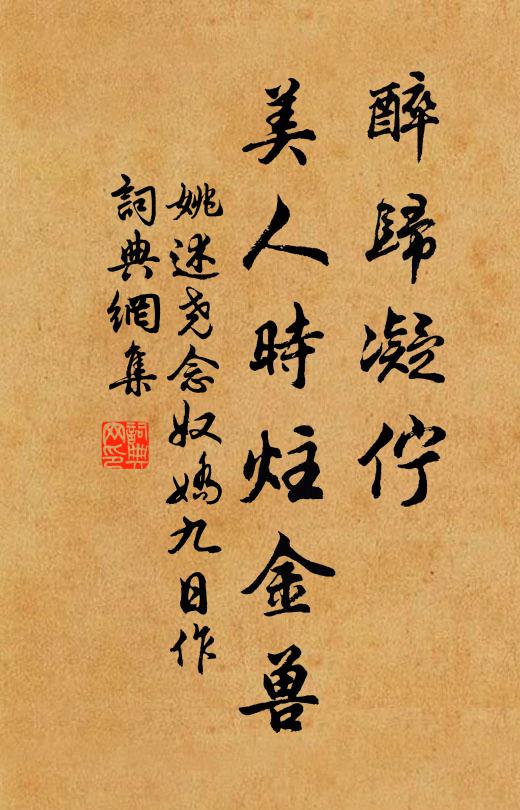 醉歸凝佇
美人時炷金兽
姚述尧念奴嬌九日作
詞典網集
詞典
网印